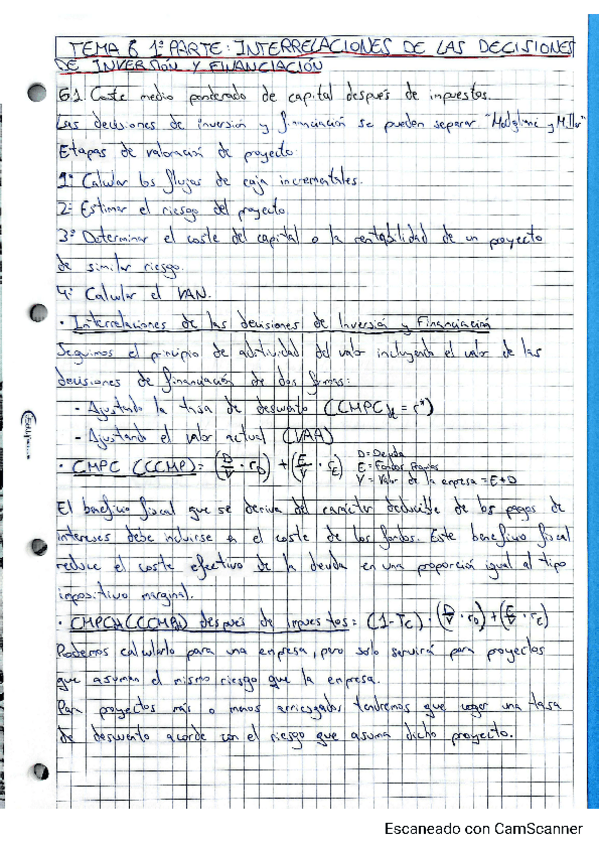 TEMA 6 1ª PARTE: INTERRELACIONES DE LAS DECISIONES
DE INVERSIÓN Y FINANCIACIÓN
6.1 Coste medio ponderado de capital después de impuestos.
Las decisiones de inversión y financiación se pueden separar "Modigliani y Miller"
Etapas de valoración de proyecto:
1º Calcular los flujos de caja incrementales.
2º Estimar el riesgo del proyecto.
3º Determinar el coste del capital o la rentabilidad de un proyecto
de similar riesgo.
4º Calcular el VAN.
· Interrelaciones de las decisiones de Inversión y Financiación
Seguimos el principio de aditividad del valor incluyendo el valor de las
decisiones de financiación de dos formas:
- Ajustando la tasa de descuento (CCMPC = r*)
- Ajustando el valor actual (VAA)
· CMPC (CCMP) = (D/V · rD) + (E/V · rE)
D = Deuda
E = Fondos Propios
V = Valor de la empresa = E+D
El beneficio fiscal que se deriva del carácter deducible de los pagos de
intereses debe incluirse en el coste de los fondos. Este beneficio fiscal
reduce el coste efectivo de la deuda en una proporción igual al tipo
impositivo marginal.
· después de impuestos = (1-Tc) · (D/V · rD) + (E/V · rE)
Podemos calcularlo para una empresa, pero solo servirá para proyectos
que asuman el mismo riesgo que la empresa.
Para proyectos más o menos arriesgados tendremos que coger una tasa
de descuento acorde con el riesgo que asuma dicho proyecto.
Escaneado con CamScanner